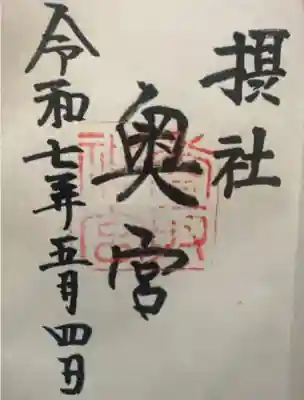 摂社
奥宮
令和七年五月四日